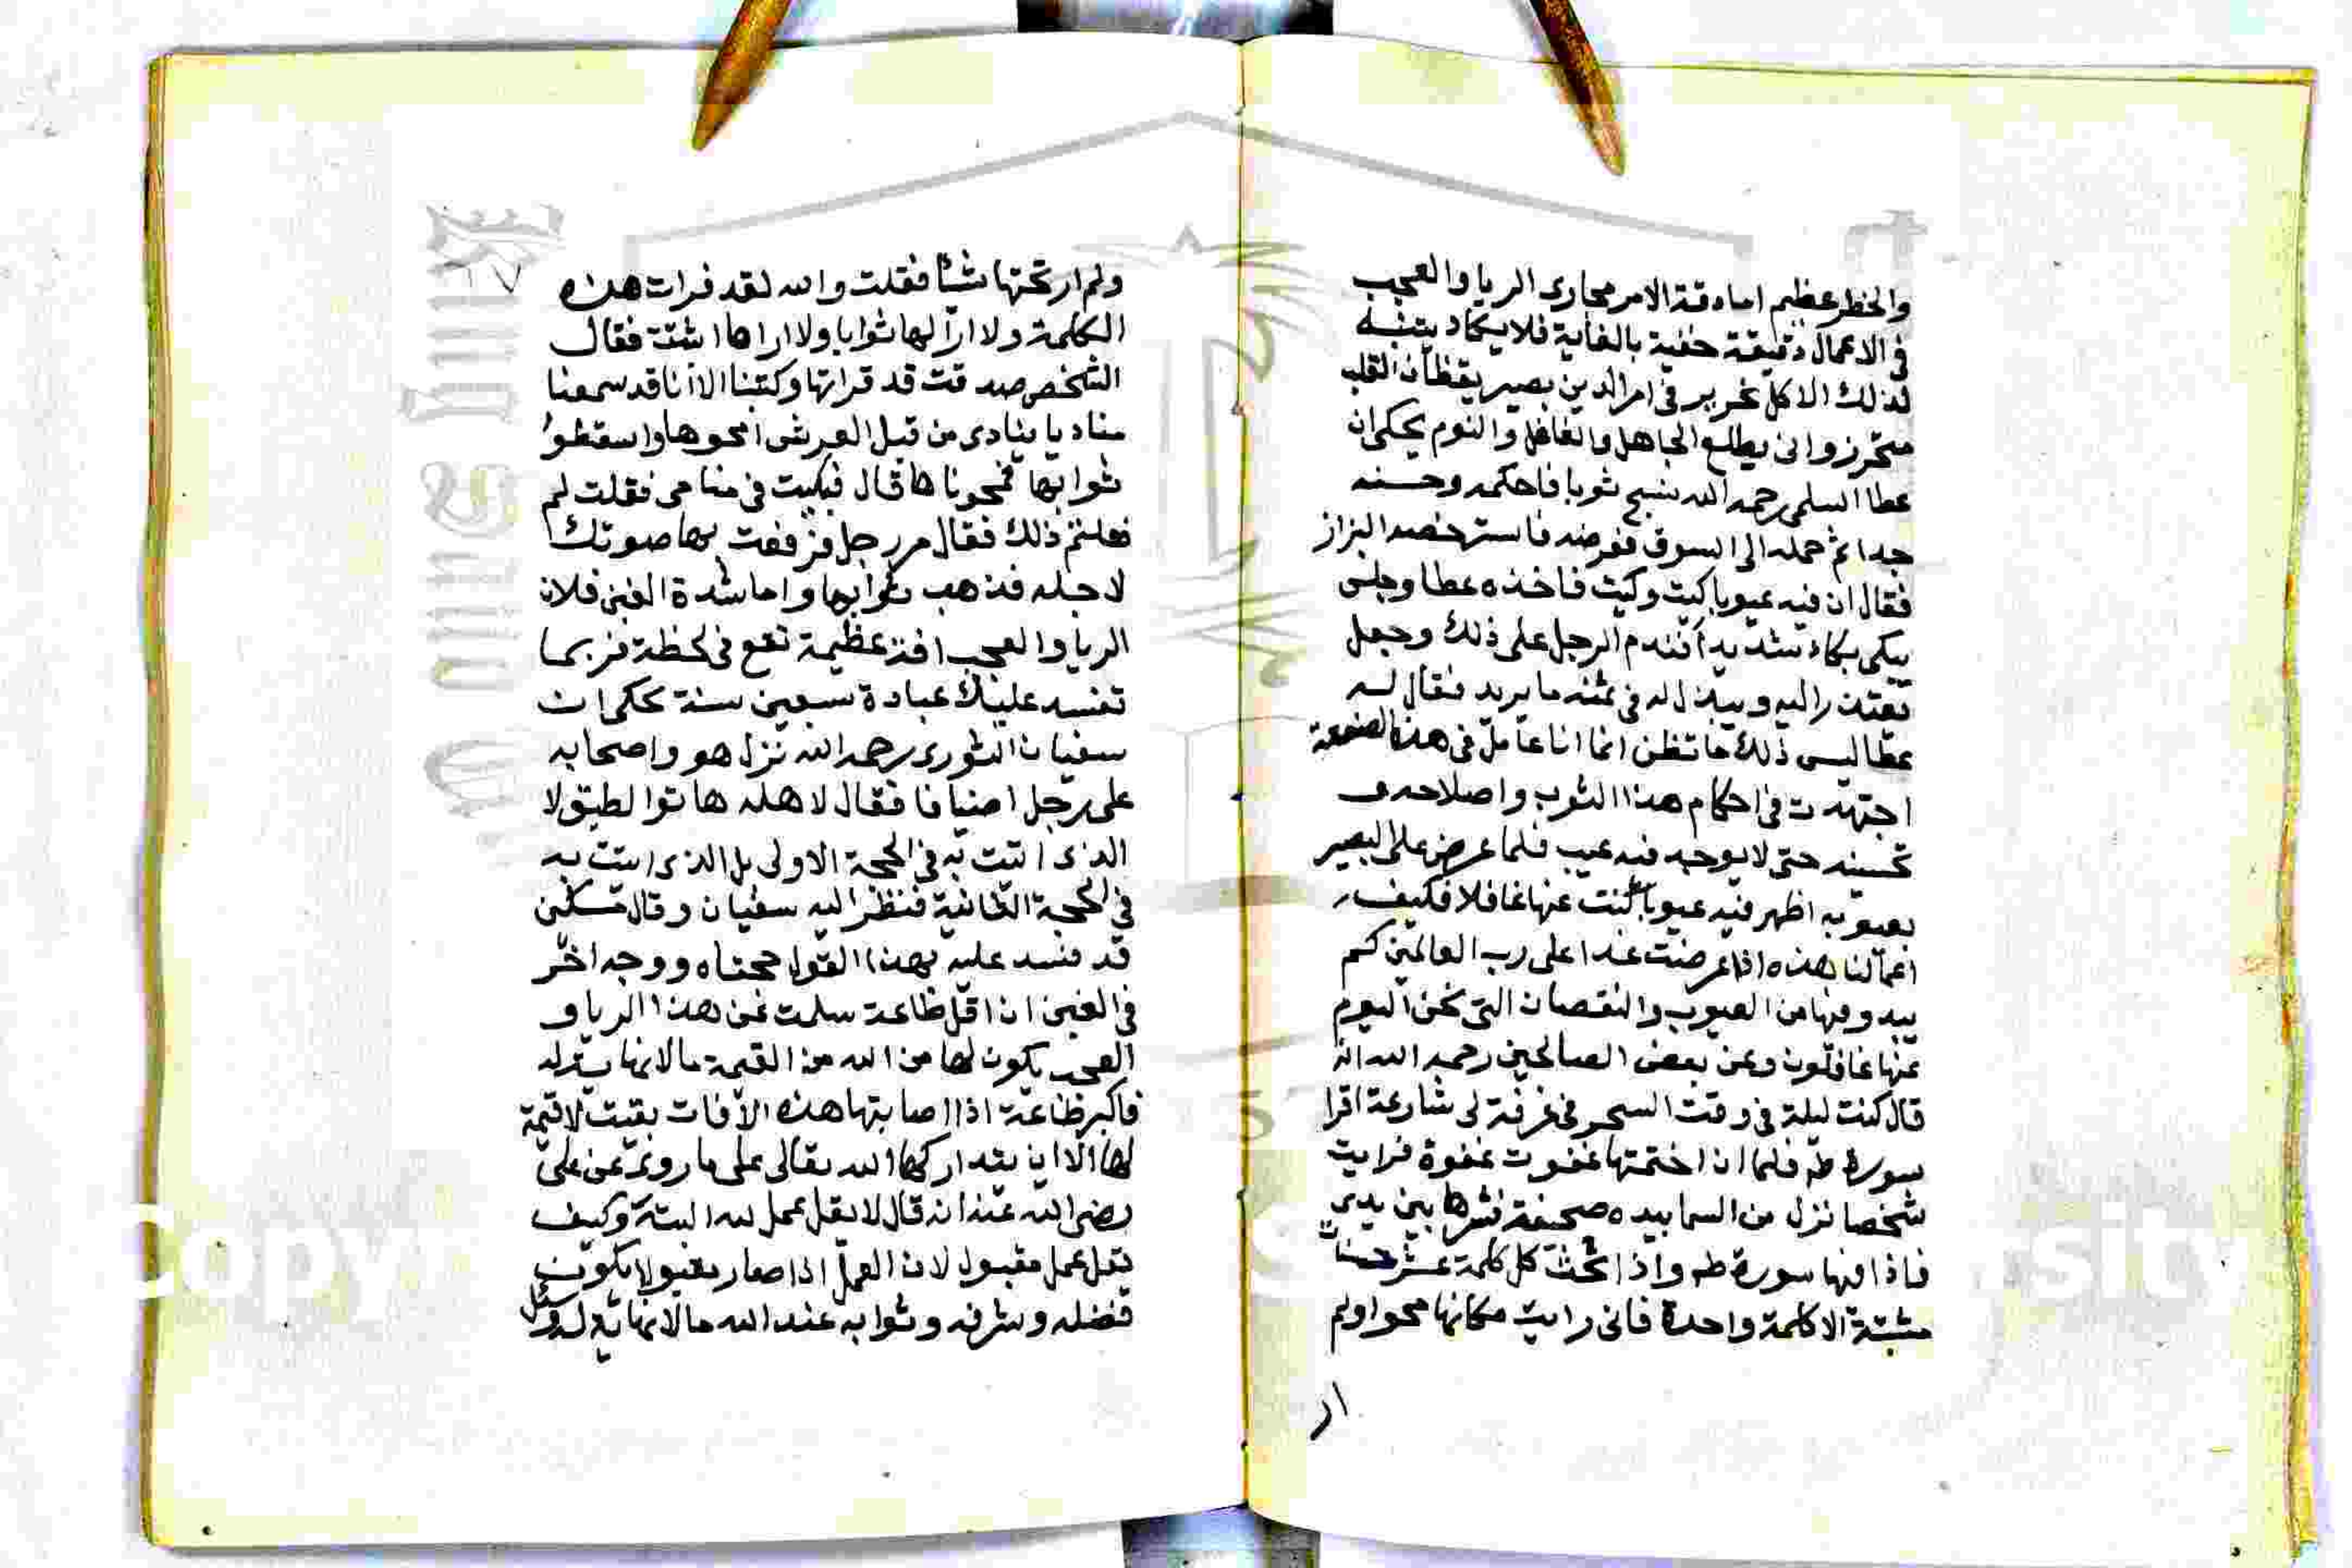 والخطر عظيم اما دقة الامر مجارى الريا والعجب
فى الاعمال دقيقة خفية بالغاية فلا يكاد يتنبه
لذلك الا كل نحرير فى امر الدين بصير يقظان القلب
متحرز وانى يطلع الجاهل والغافل والنوم يحكى ان
عطا السلمى رحمه الله ينسج ثوبا فاحكمه وحسنه
جدا ثم حمله الى السوق فعرضه فاسترخصه البزاز
فقال ان فيه عيوبا كيت وكيت فاخذه عطا وجلس
يبكى بكاء شديدا فندم الرجل على ذلك وجعل
يعتذر اليه ويبذل له فى ثمنه ما يريد فقال له
عطا ليس ذلك ما تظن انما انا عامل فى هذه الصنعة
اجتهدت فى احكام هذا الثوب واصلاحه و
تحسينه حتى لا يوجد فيه عيب فلما عرض على البصير
بعيوبه اظهر فيه عيوبا كنت عنها غافلا فكيف
اعمالنا هذه اذا عرضت غدا على رب العالمين كم
يبدو فيها من العيوب والنقصان التى نحن اليوم
عنها غافلون وعن بعض الصالحين رحمه الله انه
قال كنت ليلة فى وقت السحر فى غرفة لى شارعة اقرا
سورة طه فلما ان اختمتها غفوت غفوة فرايت
شخصا نزل من السما بيده صحيفة نشرها بين يدى
فاذا فيها سورة طه واذا تحت كل كلمة عشر حسنات
مثبتة الا كلمة واحدة فانى رايت مكانها محوا ولم
ار
ولم ار تحتها شيئا فقلت والله لقد قرات هذه
الكلمة ولا ار لها ثوابا ولا اراها اثبتة فقال
الشخص صدقت قد قراتها وكتبنا الا انا قد سمعنا
مناديا ينادى من قبل العرش امحوها واسقطوا
ثوابها فمحوناها قال فبكيت فى منامى فقلت لم
فعلتم ذلك فقال مر رجل فرفعت بها صوتك
لاجله فذهب ثوابها واما شدة الغبن فلان
الريا والعجب افة عظيمة تقع فى لحظة فربما
تفسد عليك عبادة سبعين سنة يحكى ان
سفيان الثورى رحمه الله نزل هو واصحابه
على رجل اضيافا فقال لاهله هاتوا الطبق لا
الذى اتيت به فى الحجة الاولى بل الذى اتيت به
فى الحجة الثانية فنظر اليه سفيان وقال مسكين
قد فسد عليه بهذا القول حجتاه ووجه اخر
فى الغبن ان اقل طاعة سلمت عن هذا الريا و
العجب يكون لها من الله من القيمة ما لا نهاية له
فاكبر طاعة اذا اصابتها هذه الافات بقيت لا قيمة
لها الا ان يتداركها الله تعالى على ما روى عن على
رضى الله عنه انه قال لا يقل عمل لله البتة وكيف
يقل عمل مقبول لان العمل اذا صار مقبولا يكون
فضله وشرفه وثوابه عند الله ما لا نهاية له وسئل